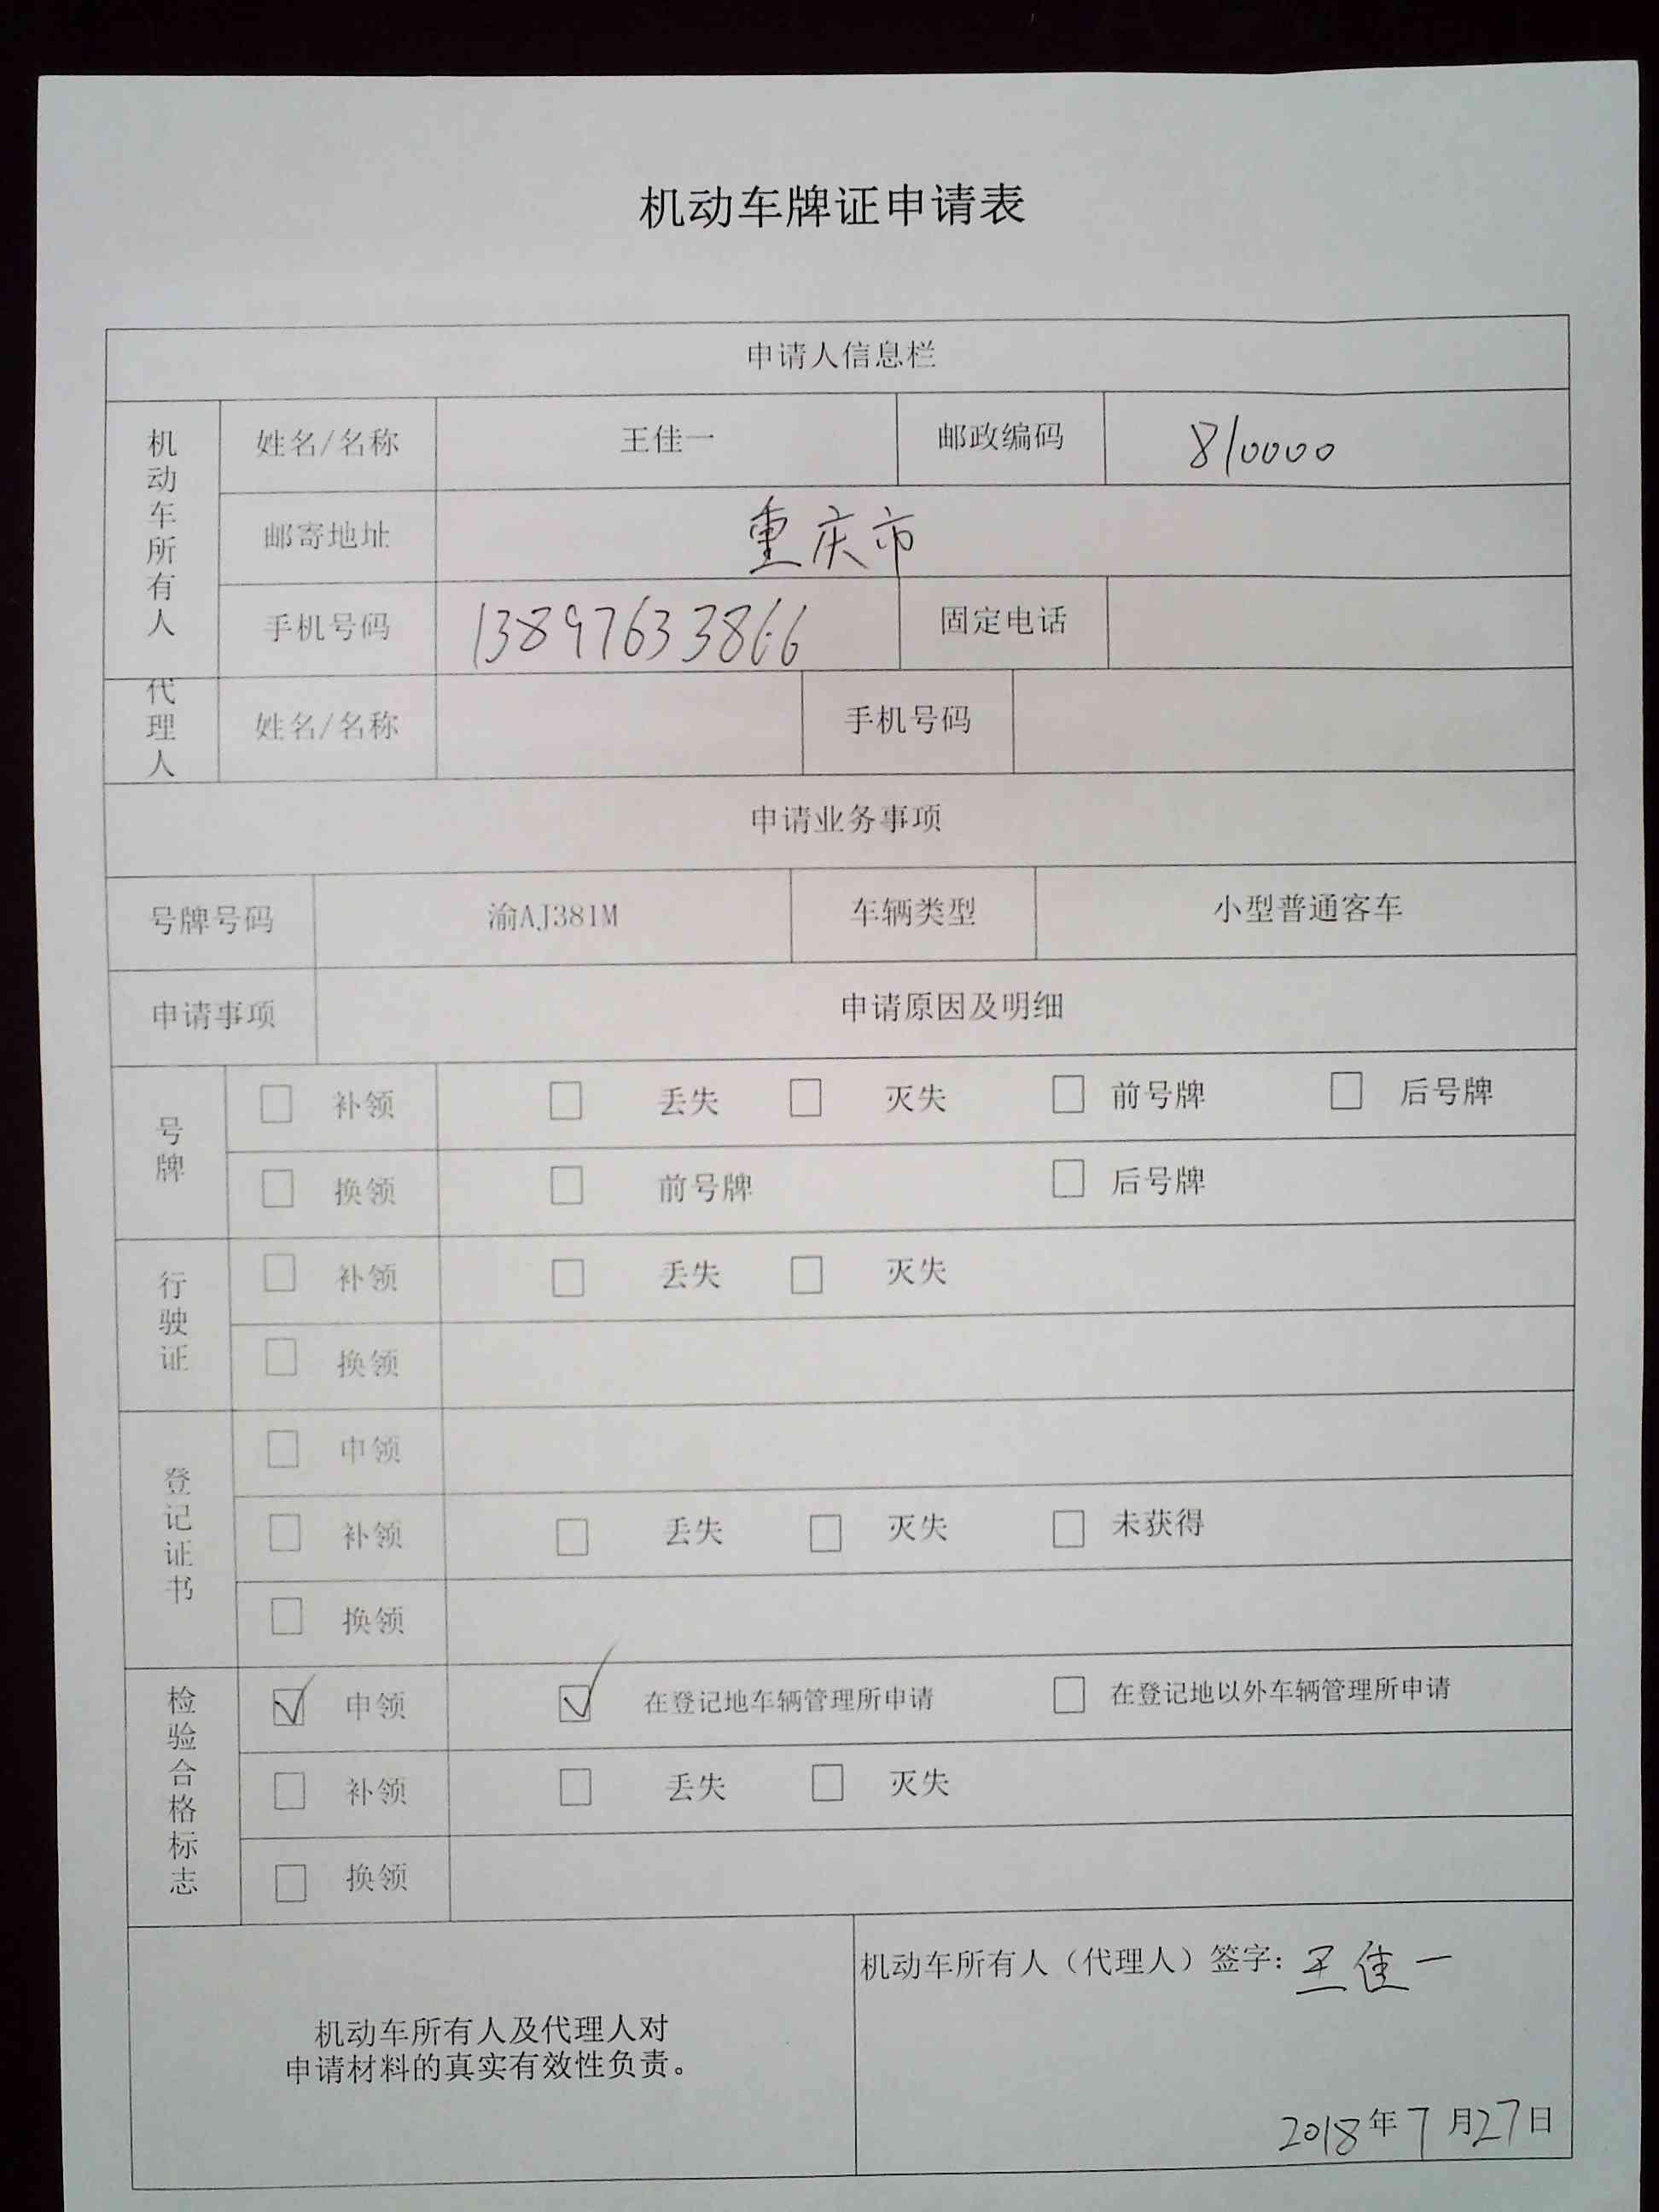 机动车牌证申请表
申请人信息栏
机动车所有人
姓名/名称 王佳一 邮政编码 810000
邮寄地址 重庆市
手机号码 13897633866 固定电话
代理人 姓名/名称 手机号码
申请业务事项
号牌号码 渝AJ381M 车辆类型 小型普通客车
申请事项 申请原因及明细
号牌
□ 补领 □ 丢失 □ 灭失 □ 前号牌 □ 后号牌
□ 换领 □ 前号牌 □ 后号牌
行驶证
□ 补领 □ 丢失 □ 灭失
□ 换领
登记证书
□ 申领
□ 补领 □ 丢失 □ 灭失 □ 未获得
□ 换领
检验合格标志
☑ 申领 ☑ 在登记地车辆管理所申请 □ 在登记地以外车辆管理所申请
□ 补领 □ 丢失 □ 灭失
□ 换领
机动车所有人及代理人对
申请材料的真实有效性负责。
机动车所有人（代理人）签字：王佳一
2018年7月27日